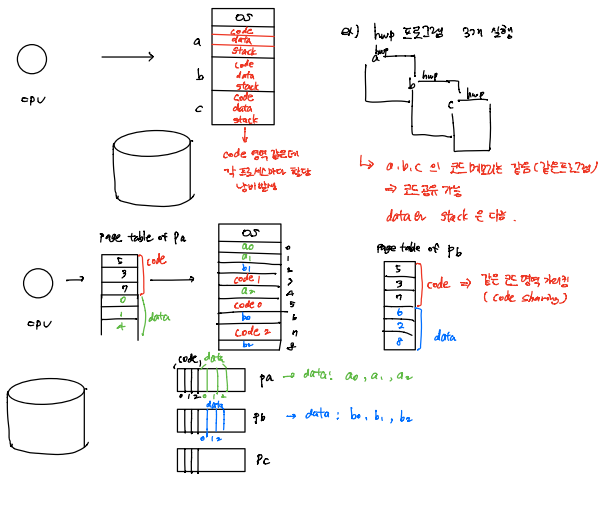 OS
a
code
data
stack
b
code
data
stack
c
code
data
stack
CPU
code 영역 같은데
각 프로세스마다 할당
낭비발생
ex) hwp 프로그램 3개 실행
hwp
a
hwp
b
hwp
c
↳ a.b.c 의 코드 메모리는 같음 (같은프로그램)
⇒ 코드공유 가능
data와 stack 은 다름.
page table of Pa
5
3
7
0
1
4
code
data
CPU
OS
a0 0
a1 1
b1 2
code 1 3
a2 4
code 0 5
b0 6
code 2 7
b2 8
page table of Pb
5
3
7
6
2
8
code ⇒ 같은 코드 영역 가리킴
(code sharing)
data
code data
0 1 2 0 1 2
Pa → data: a0, a1, a2
data
0 1 2
Pb → data: b0, b1, b2
Pc